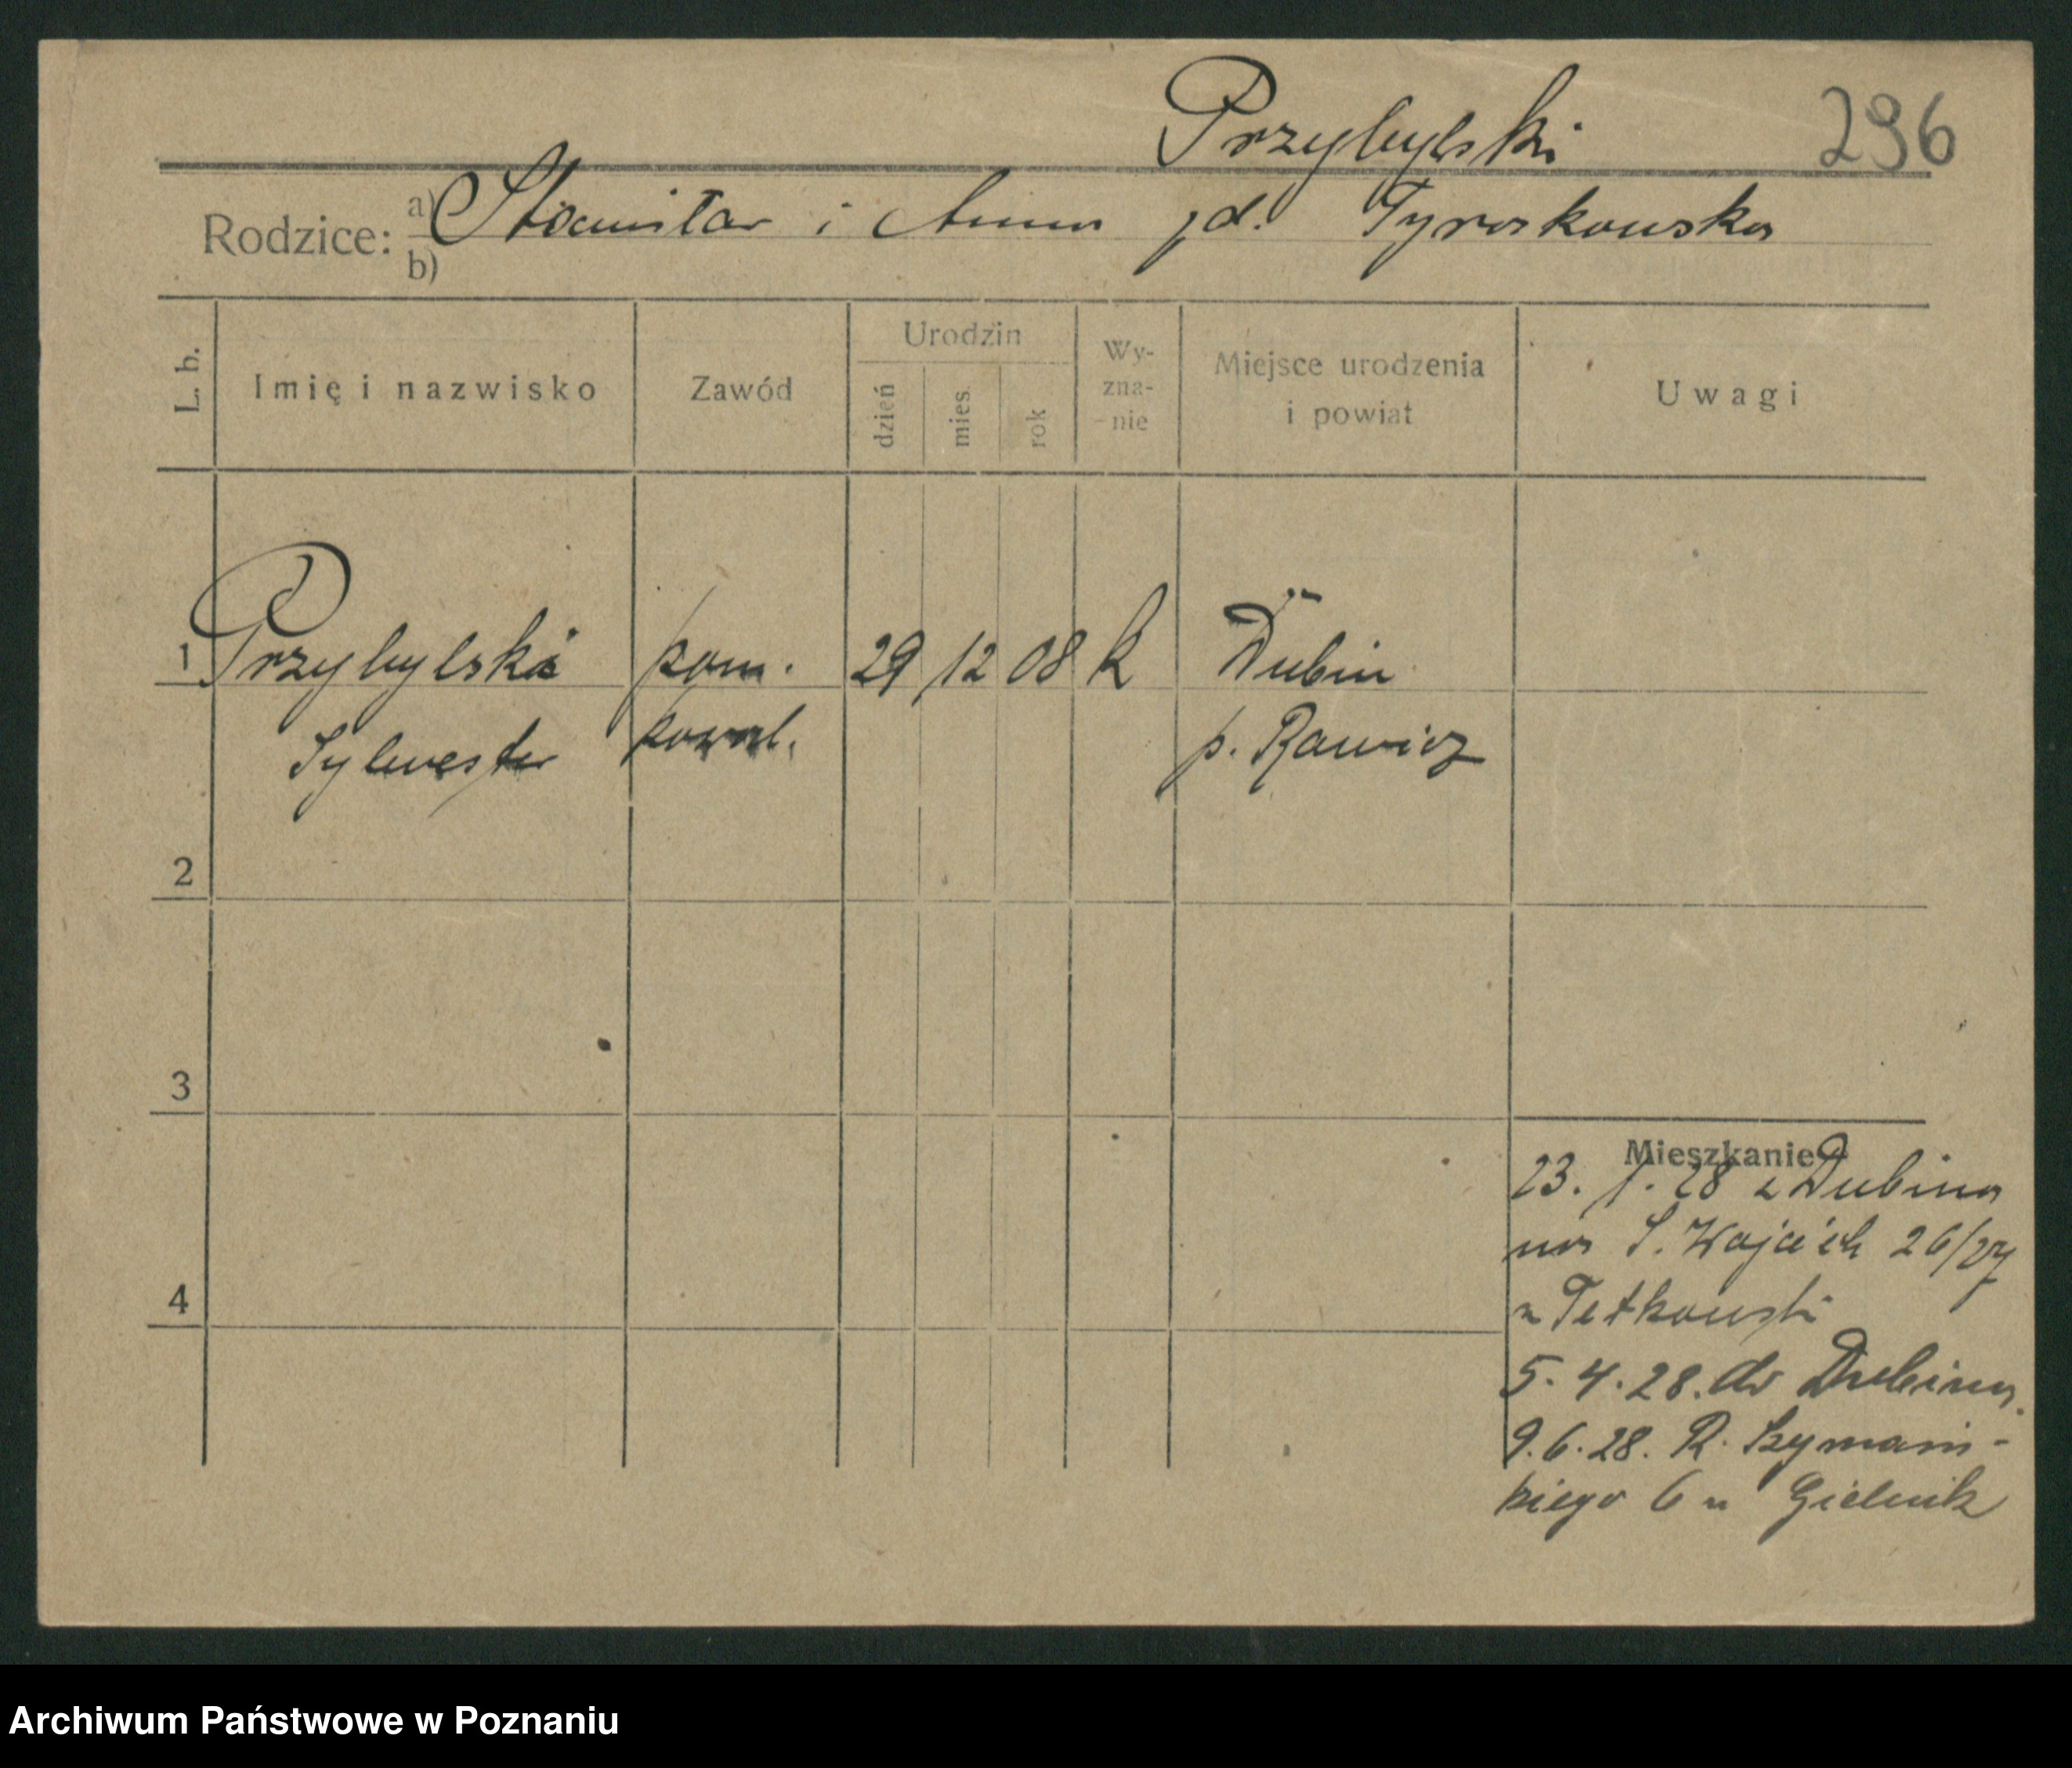 Przybylski 296
Rodzice: a) Stanisław i Anna zd. Tyrakowska
b)
L. b. Imię i nazwisko Zawód Urodzin dzień mies. rok Wy-zna--nie Miejsce urodzenia i powiat Uwagi
1 Przybylski pom. 29 12 08 k Dubin
Sylwester kowal. p. Rawicz
2
3
Mieszkanie
23. 1. 28 z Dubina
na S. Wojciech 26/27
4
u Tetkowski
5. 4. 28. do Dubina
9. 6. 28. R. Szymań-
skiego 6 u Gielnik
Archiwum Państwowe w Poznaniu